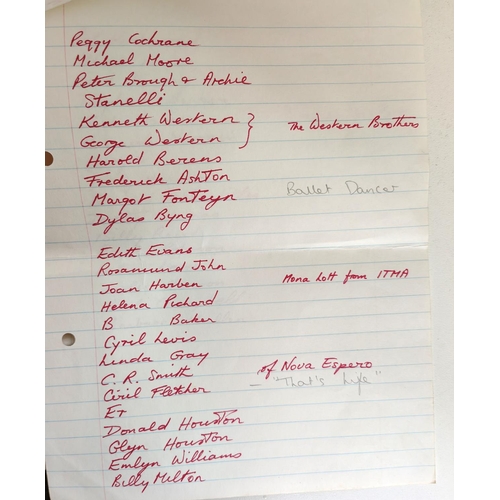 Peggy Cochrane
Michael Moore
Peter Brough & Archie
Stanelli
Kenneth Western
George Western } The Western Brothers
Harold Berens
Frederick Ashton
Margot Fonteyn Ballet Dancer
Dylas Byng
Edith Evans
Rosamund John
Joan Harben Mona Lott from ITMA
Helena Pichard
B Baker
Cyril Levis
Linda Gray
C. R. Smith of Nova Espero
Ciril Fletcher - "That's Life"
Er
Donald Houston
Glyn Houston
Emlyn Williams
Billy Milton